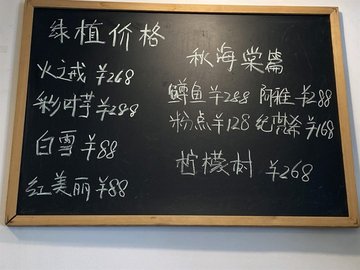 绿植价格
火之戒 ¥268
彩叶芋 ¥288
白雪 ¥88
红美丽 ¥88
秋海棠篇
鳟鱼 ¥288 阿雅 ¥288
粉点 ¥128 ¥168
柠檬树 ¥268